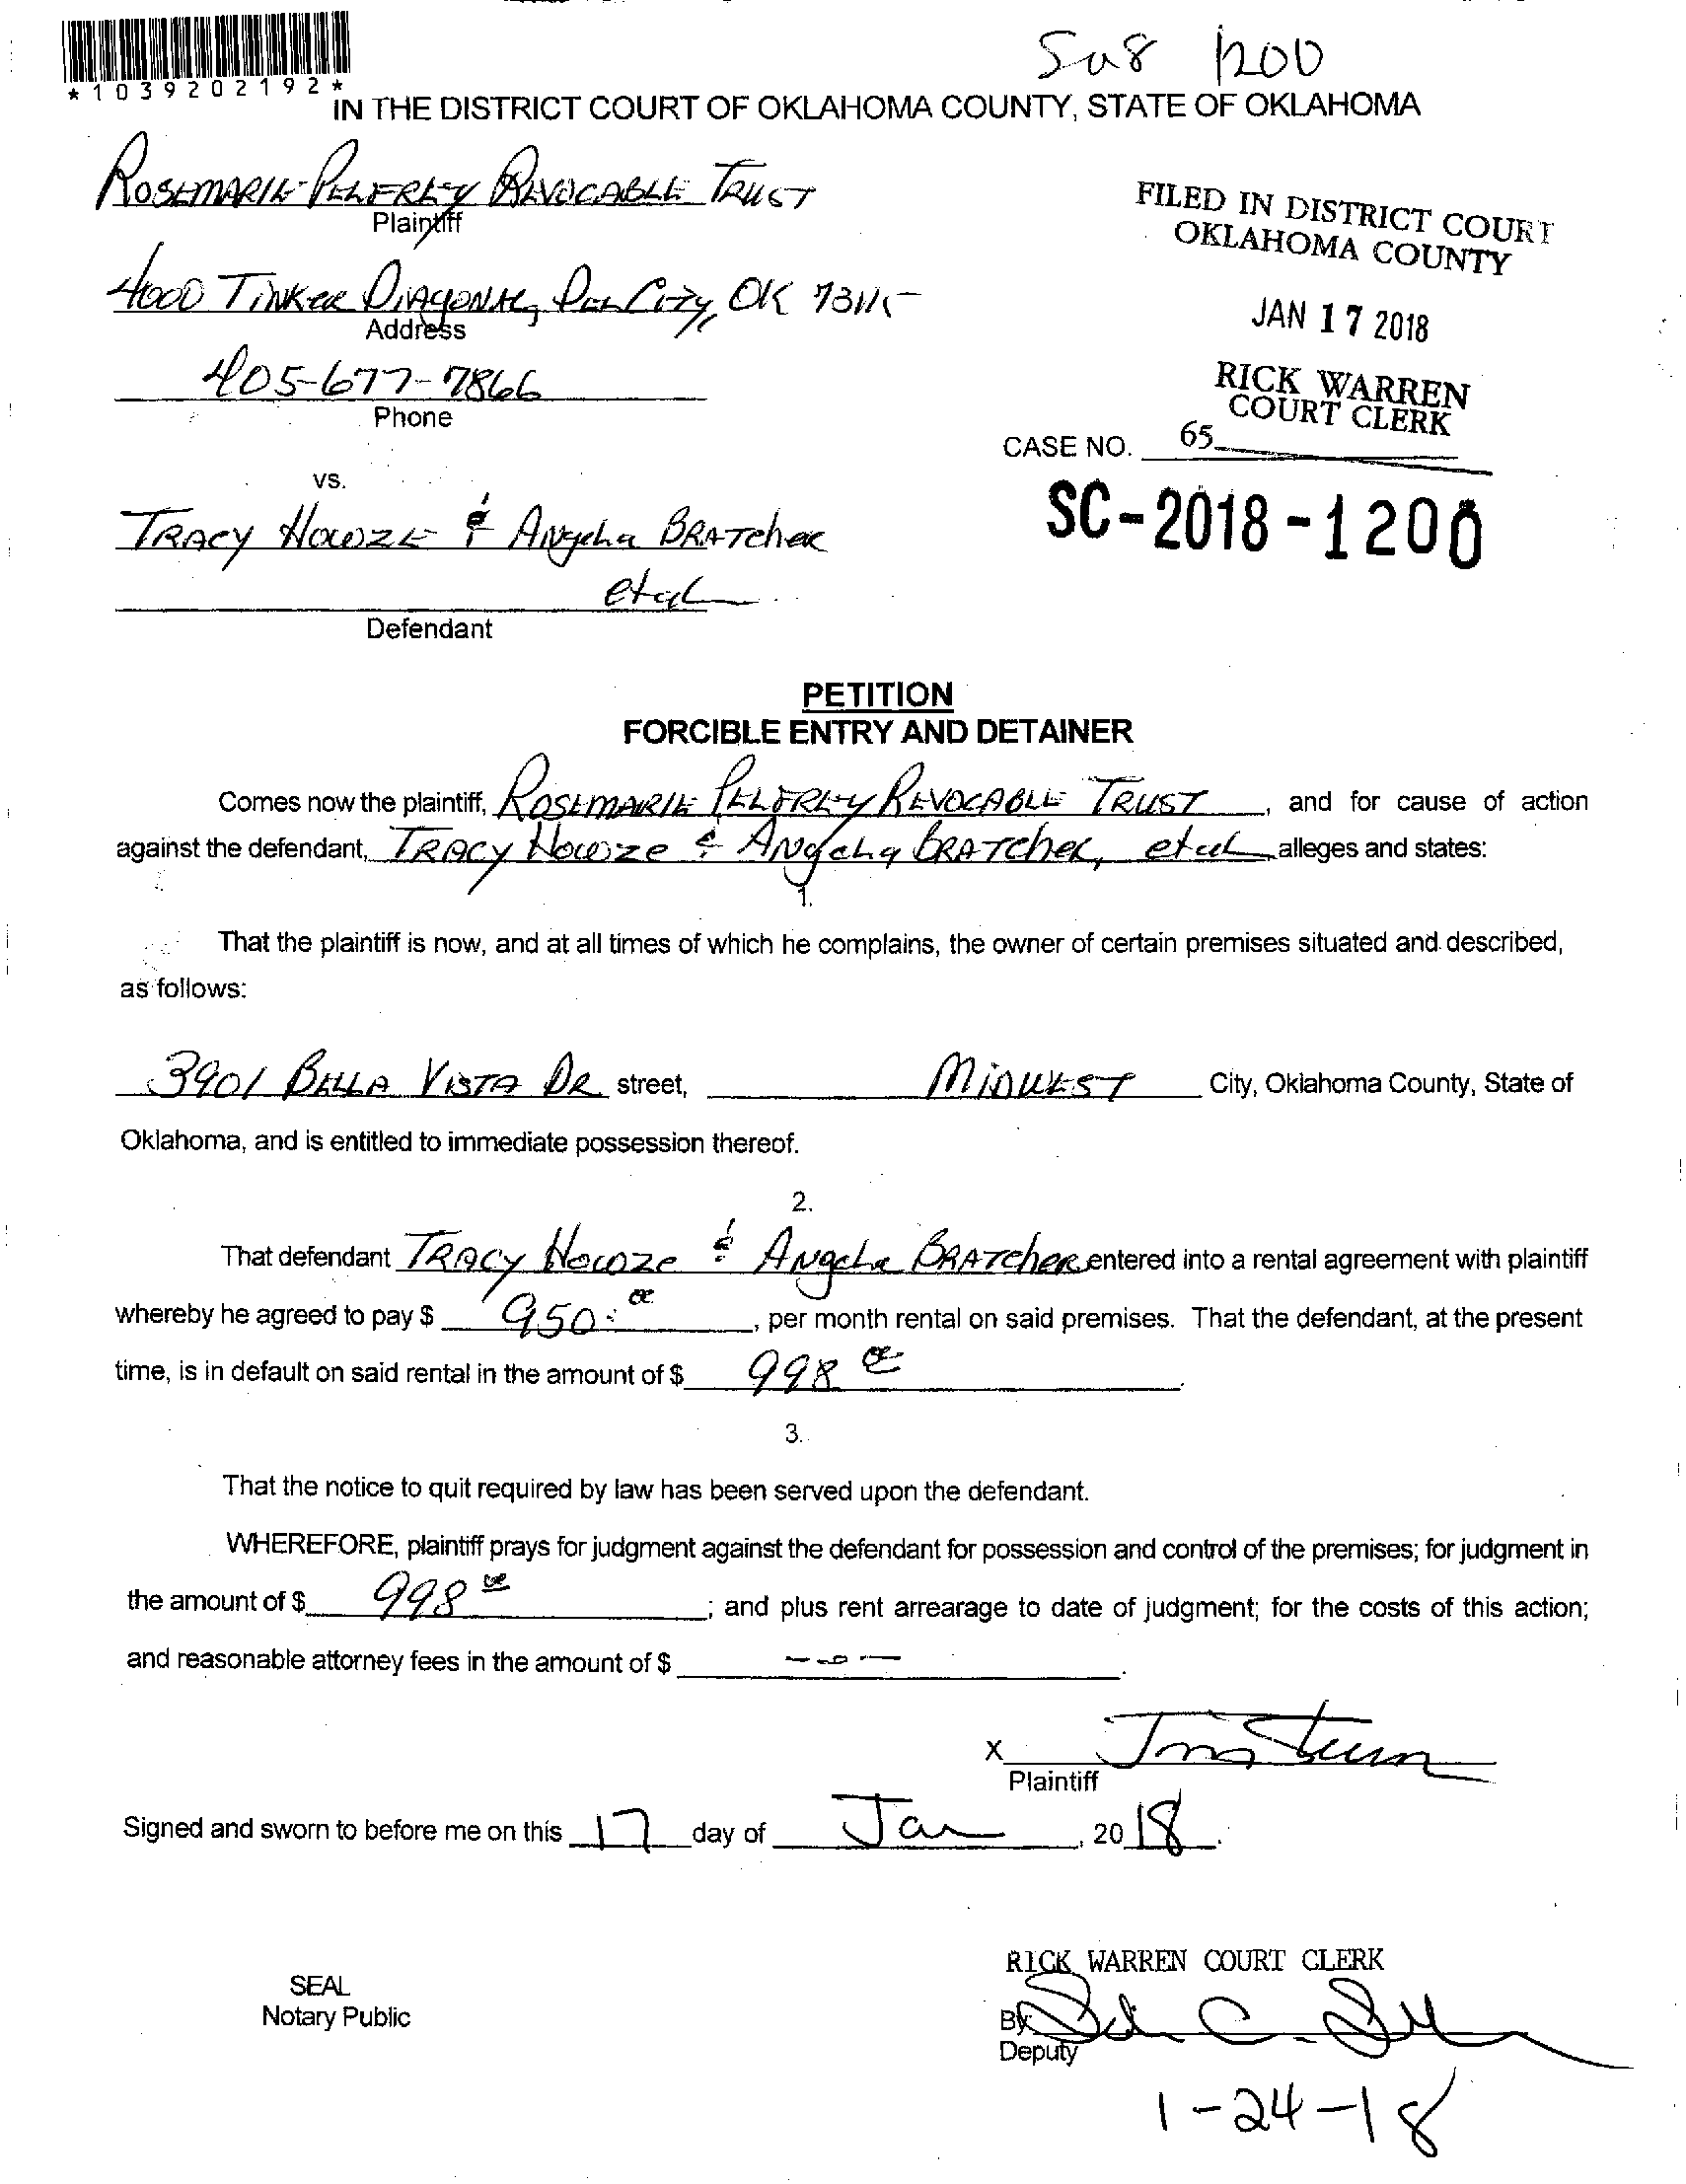 Su8 1200
*1039202192*
IN THE DISTRICT COURT OF OKLAHOMA COUNTY, STATE OF OKLAHOMA
ROSEMARIE PELFREY REVOCABLE TRUST
Plaintiff
FILED IN DISTRICT COURT
OKLAHOMA COUNTY
4000 TINKER DIAGONAL, DEL CITY, OK 73115
Address
JAN 17 2018
405-677-7866
Phone
RICK WARREN
COURT CLERK
CASE NO. 65
vs.
TRACY HOWZE & Angela BRATcher
etal
SC-2018-1200
Defendant
PETITION
FORCIBLE ENTRY AND DETAINER
Comes now the plaintiff, ROSEMARIE PELFREY REVOCABLE TRUST, and for cause of action
against the defendant, TRACY Howze & Angela BRATcher, etal alleges and states:
1.
That the plaintiff is now, and at all times of which he complains, the owner of certain premises situated and described,
as follows:
3901 BELLA VISTA DR street, MIDWEST City, Oklahoma County, State of
Oklahoma, and is entitled to immediate possession thereof.
2.
That defendant TRACY Howze & Angela BRATcher entered into a rental agreement with plaintiff
whereby he agreed to pay $ 950.00, per month rental on said premises. That the defendant, at the present
time, is in default on said rental in the amount of $ 998 00.
3.
That the notice to quit required by law has been served upon the defendant.
WHEREFORE, plaintiff prays for judgment against the defendant for possession and control of the premises; for judgment in
the amount of $ 998 00; and plus rent arrearage to date of judgment; for the costs of this action;
and reasonable attorney fees in the amount of $ --0--.
X
Plaintiff
Signed and sworn to before me on this 17 day of Jan, 2018.
RICK WARREN COURT CLERK
SEAL
Notary Public
By:
Deputy
1-24-18